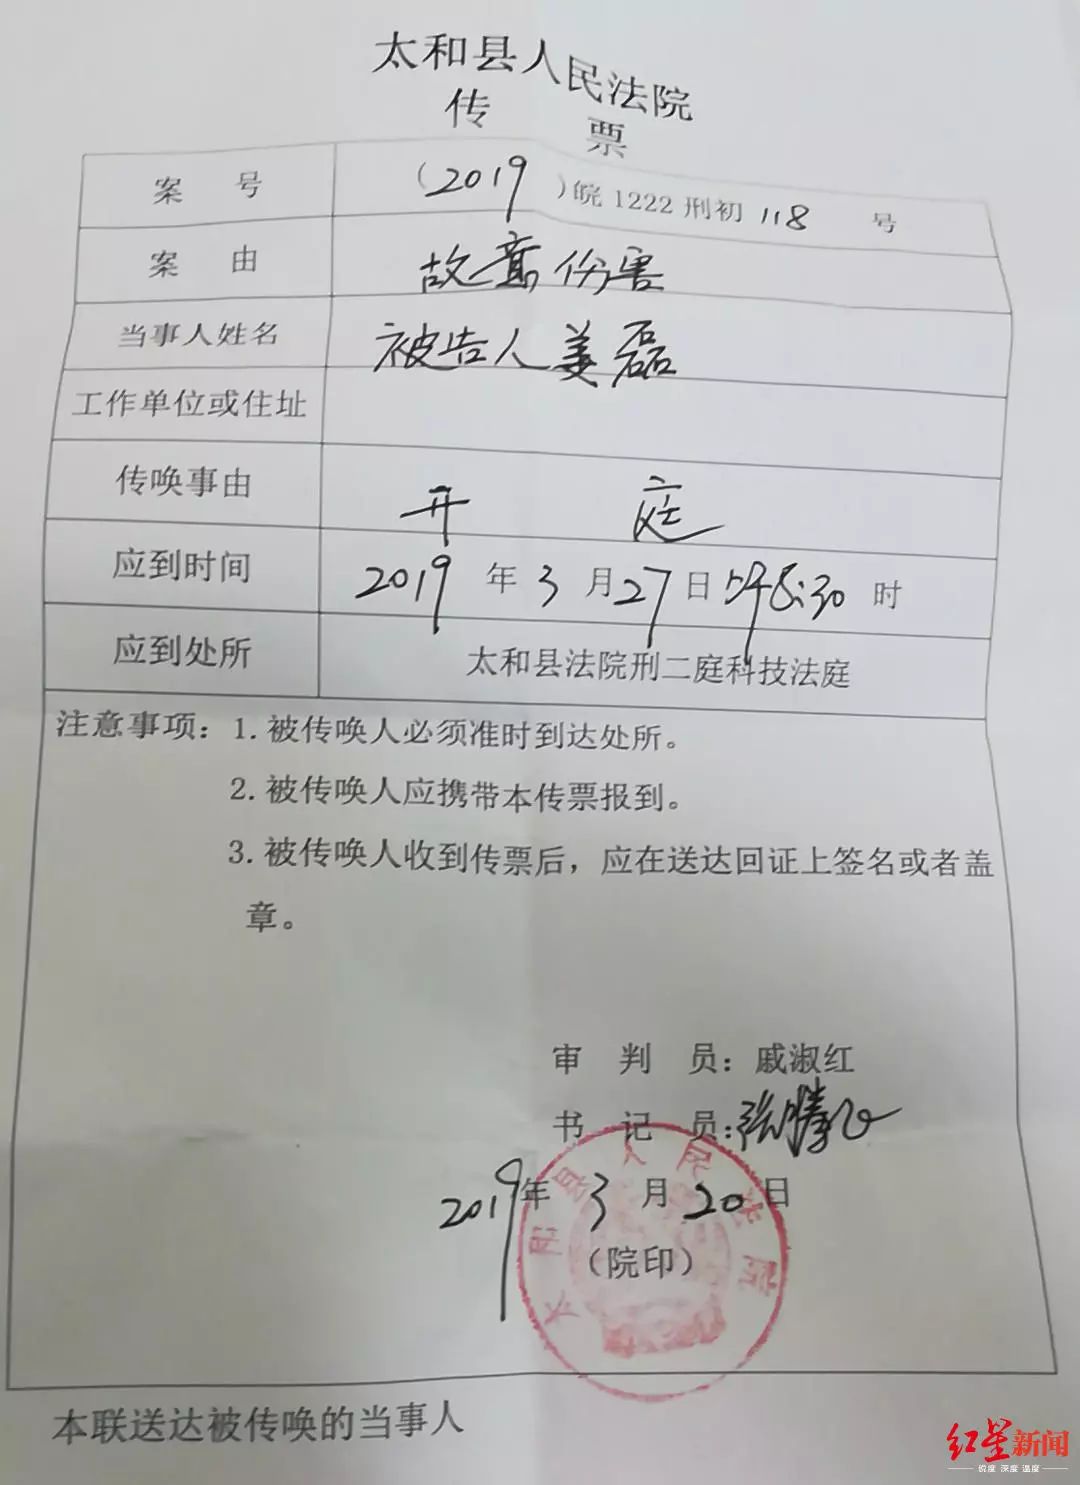 太和县人民法院
传 票
案 号 (2019)皖1222刑初118 号
案 由 故意伤害
当事人姓名 被告人姜磊
工作单位或住址
传唤事由 开 庭
应到时间 2019年3月27日上午8:30时
应到处所 太和县法院刑二庭科技法庭
注意事项：1.被传唤人必须准时到达处所。
2.被传唤人应携带本传票报到。
3.被传唤人收到传票后，应在送达回证上签名或者盖
章。
审 判 员：戚淑红
书 记 员：张腾飞
2019年3月20日
(院印)
本联送达被传唤的当事人
红星新闻
锐度 深度 温度